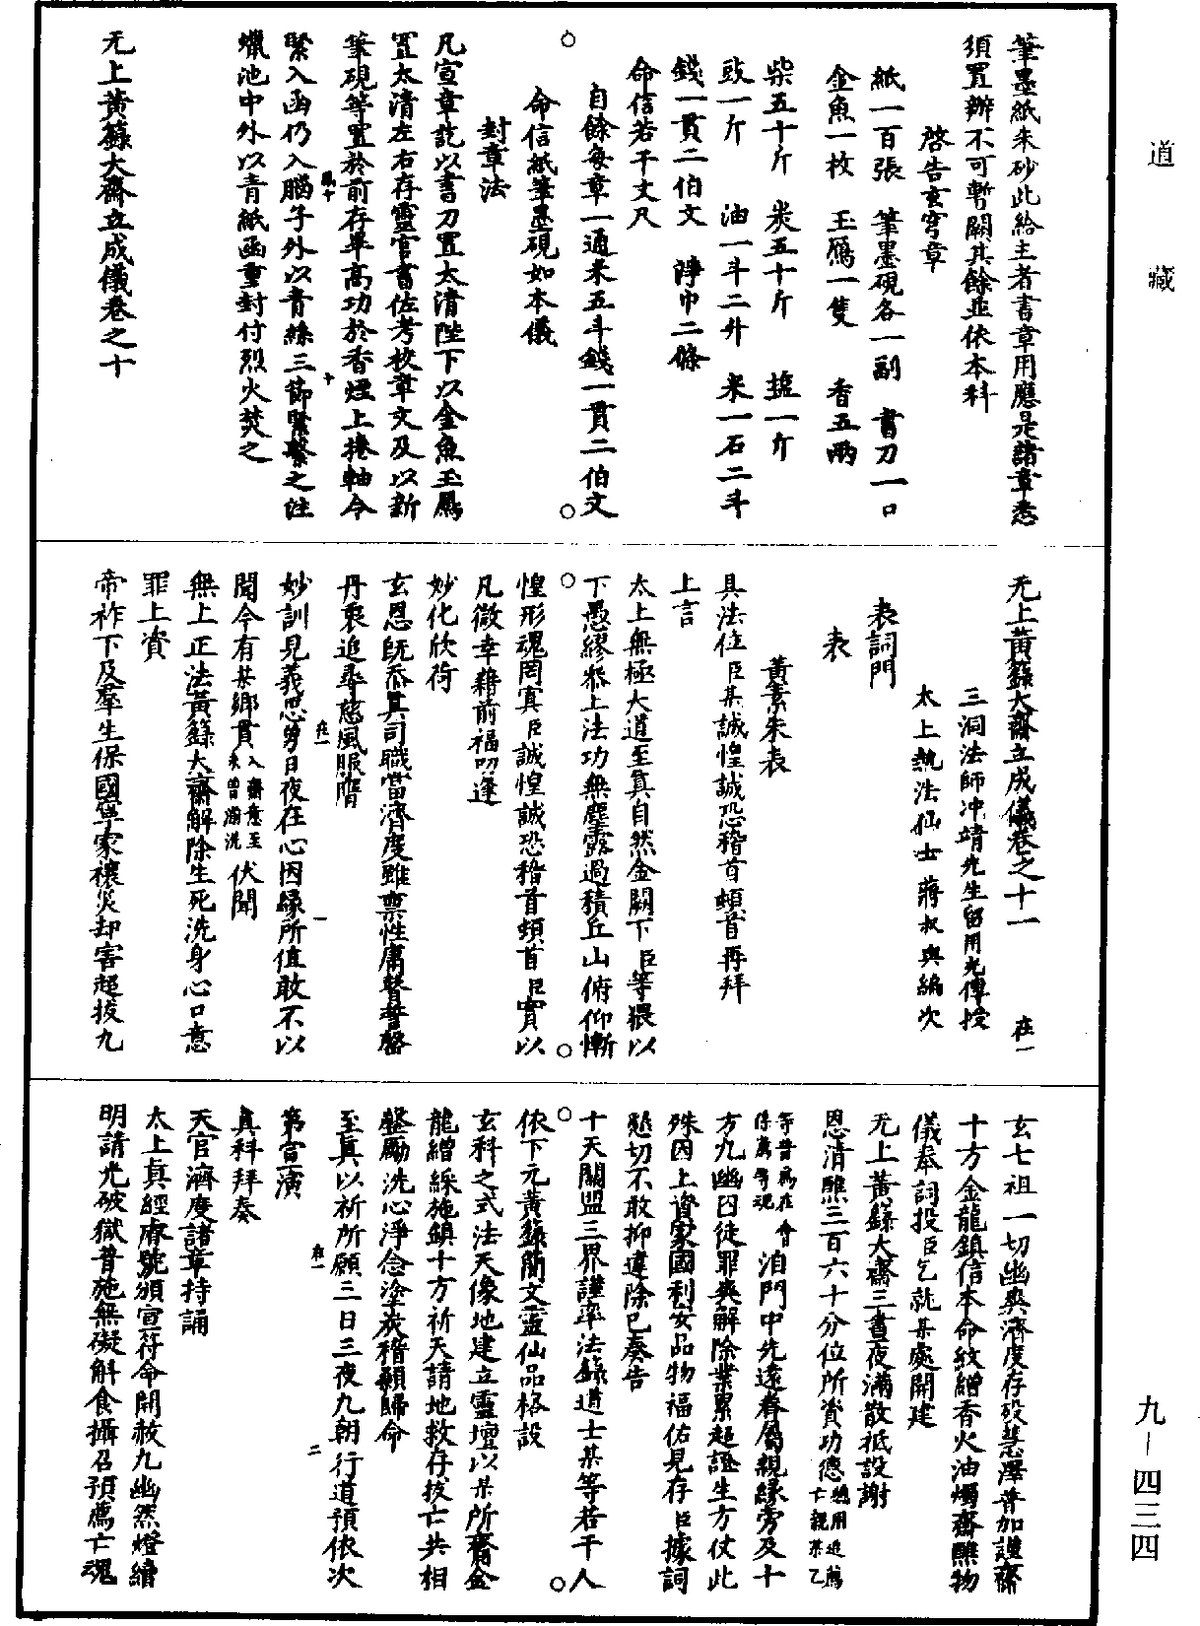 道藏
筆墨紙朱砂此給主者書章用應是諸章悉
須置辦不可暫闕其餘並依本科
啓告玄穹章
紙一百張 筆墨硯各一副 書刀一口
金魚一枚 玉鴈一隻 香五兩
柴五十斤 炭五十斤 鹽一斤
豉一斤 油一斗二升 米一石二斗
錢一貫二伯文 淨巾二條
命信若干丈尺
自餘每章一通米五斗錢一貫二伯文
命信紙筆墨硯如本儀
封章法
凡宣章訖以書刀置太清陛下以金魚玉鴈
置太清左右存靈官書佐考校章文及以新
筆硯等置於前存畢高功於香煙上捲軸令
緊入函仍入腦子外以青絲三節緊繫之注
蠟池中外以青紙函重封付烈火焚之
无上黃籙大齋立成儀卷之十
无上黃籙大齋立成儀卷之十一 在一
三洞法師冲靖先生留用光傳授
太上執法仙士蔣叔輿編次
表詞門
表
黃素朱表
具法位臣某誠惶誠恐稽首頓首再拜
上言
太上無極大道至真自然金闕下臣等猥以
下愚繆忝上法功無塵露過積丘山俯仰慚
惶形魂罔寘臣誠惶誠恐稽首頓首臣實以
凡微幸藉前福叨逢
妙化欣荷
玄恩旣忝真司職當濟度雖禀性庸瞽誓罄
丹衷追尋慈風服膺
妙訓見義思勇日夜在心因緣所值敢不以
聞今有某鄉貫入齋意至未曾湔洗伏聞
無上正法黃籙大齋解除生死洗身心口意
罪上資
帝祚下及羣生保國寧家禳災却害超拔九
玄七祖一切幽爽濟度存歿慧澤普加謹齋
十方金龍鎮信本命紋繒香火油燭齋醮物
儀奉詞投臣乞就某處開建
无上黃籙大齋三晝夜滿散祗設謝
恩清醮三百六十分位所資功德
等普爲在會 洎門中先遠眷屬親緣旁及十
方九幽囚徒罪爽解除業累超證生方仗此
殊因上資家國利安品物福佑見存臣據詞
懇切不敢抑違除已奏告
十天關盟三界謹率法籙道士某等若干人
依下元黃籙簡文靈仙品格設
玄科之式法天像地建立靈壇以某所齋金
龍繒綵施鎮十方祈天請地救存拔亡共相
整勵洗心淨念塗炭稽顙歸命
至真以祈所願三日三夜九朝行道預依次
第宣演
真科拜奏
天官濟度諸章持誦
太上真經靡號頒宣符命開赦九幽然燈續
明請光破獄普施無礙斛食攝召預薦亡魂
九－四三四